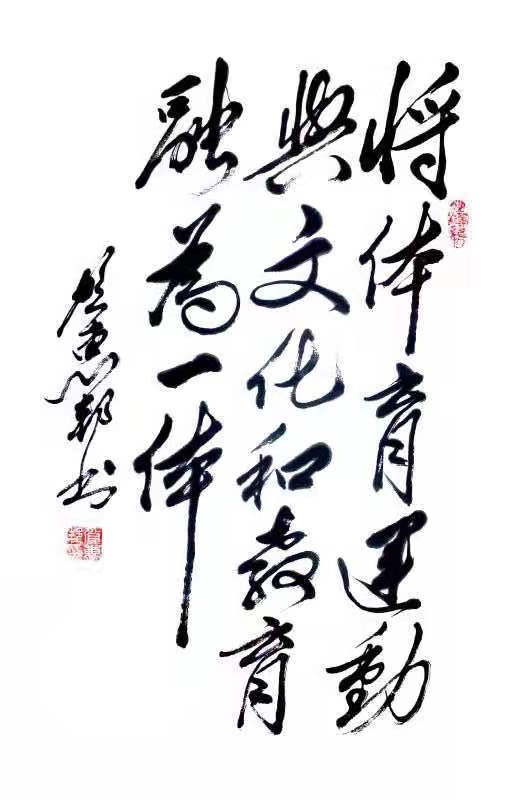 将体育運動
與文化和教育
融為一体
惠邦书